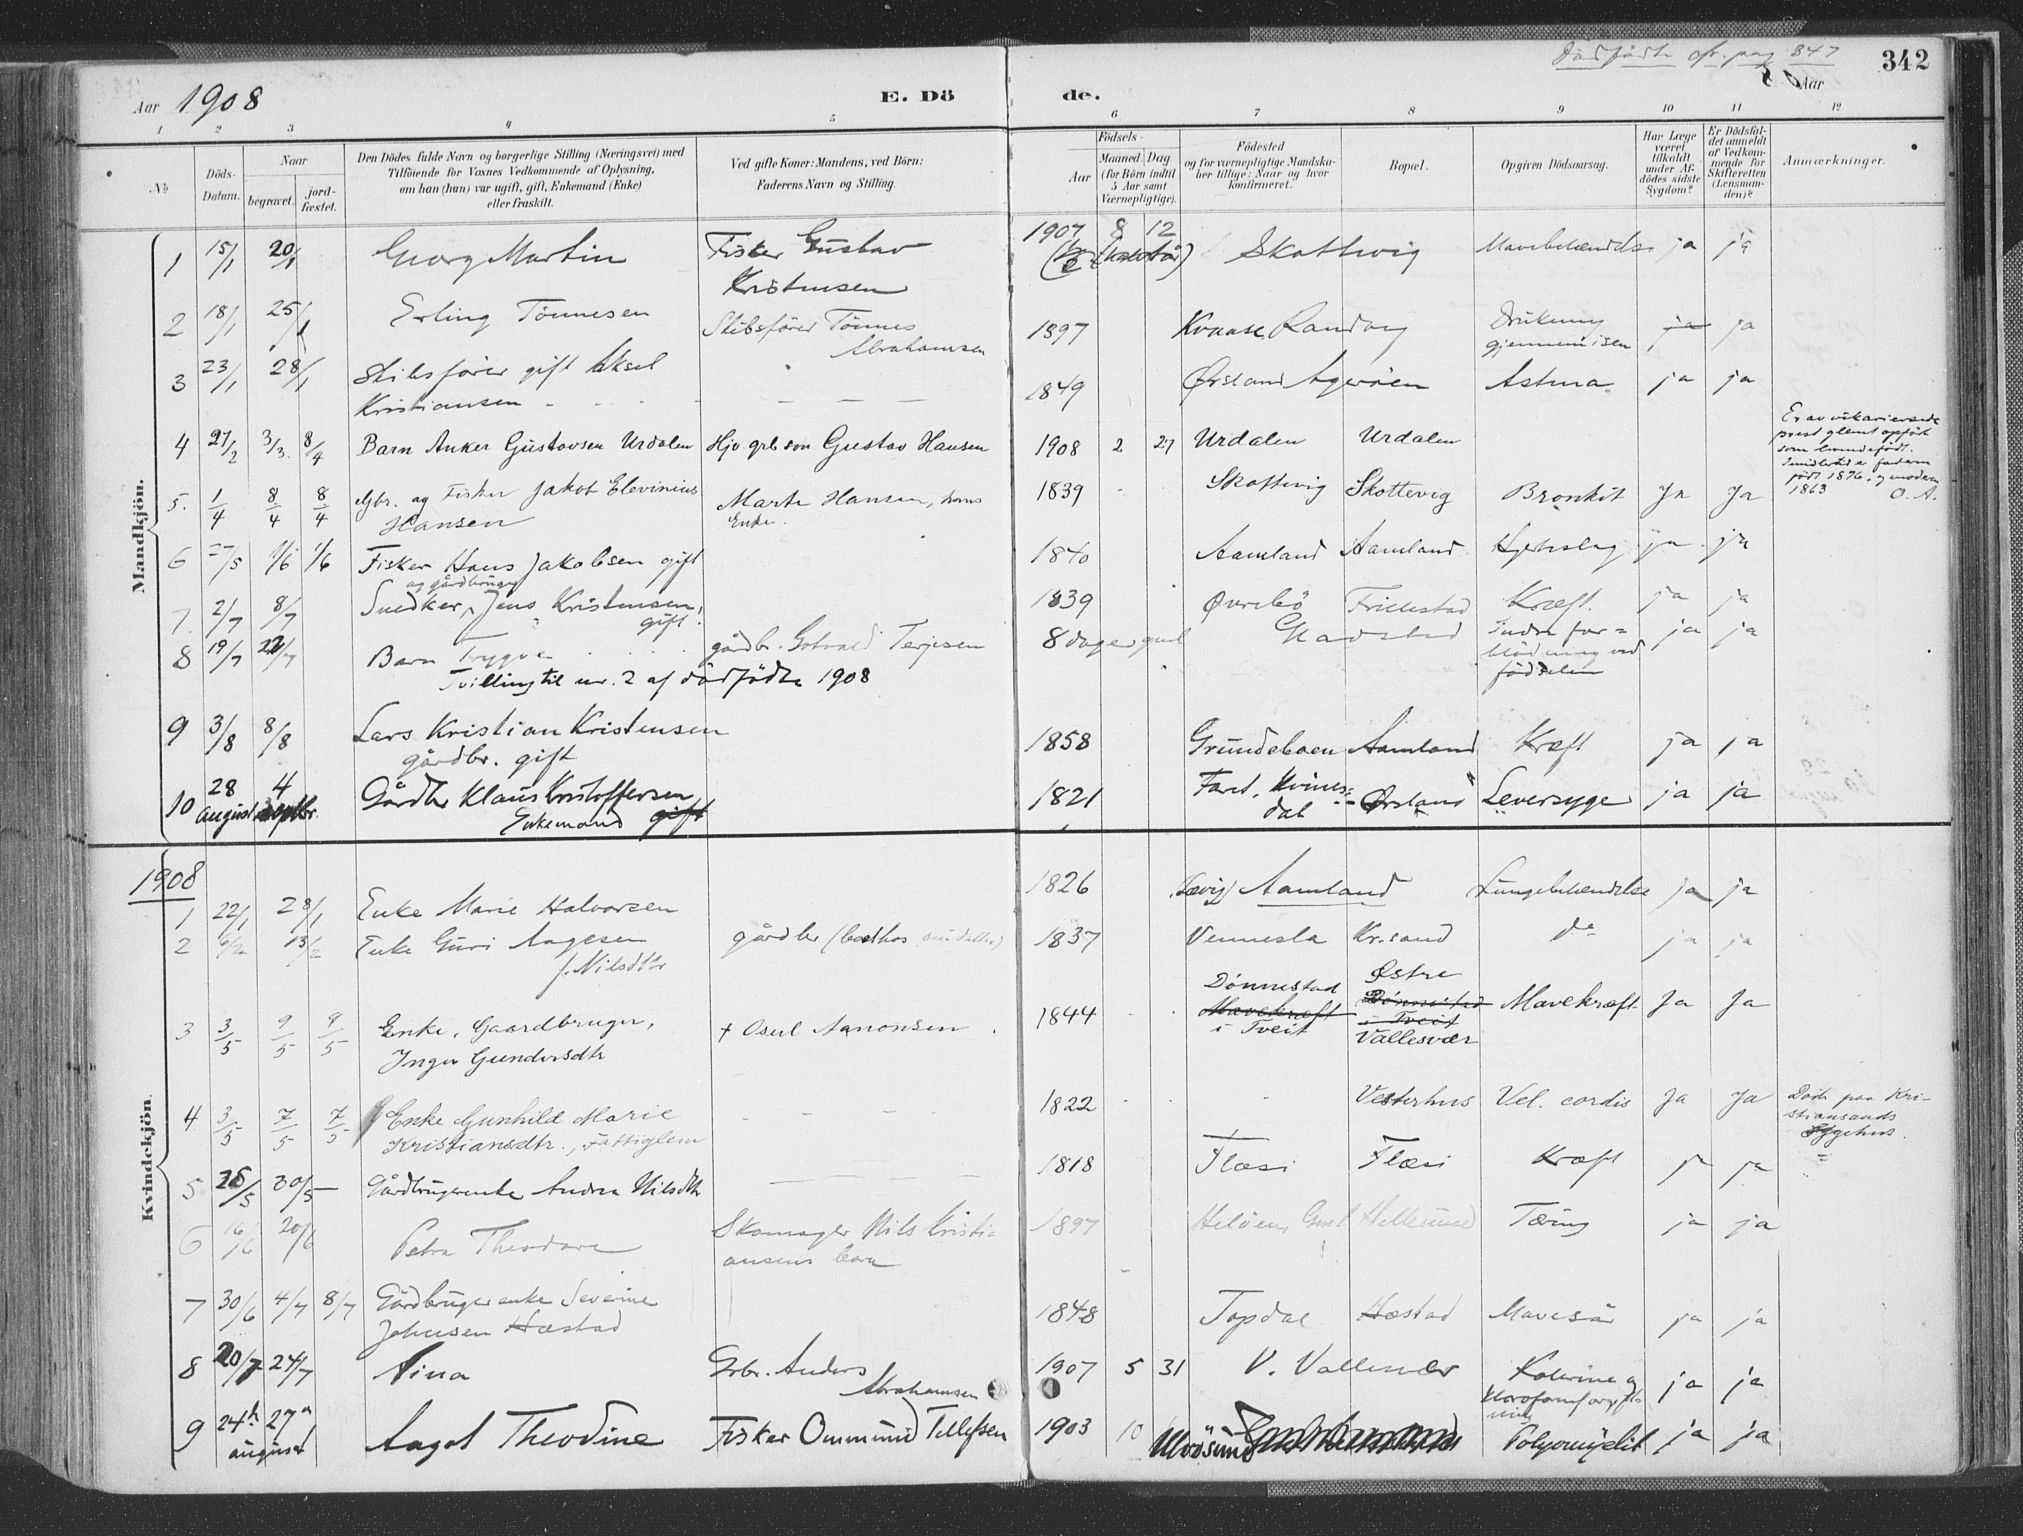 Dödfödte cfr. pag 347
342
Aar 1908 E. Dö de. Aar
1 2 3 4 5 6 7 8 9 10 11 12
No
Döds-Datum.
Naar begravet. jordfæstet.
Den Dödes fulde Navn og borgerlige Stilling (Næringsvei) med Tilföiende for Voxnes Vedkommende af Oplysning, om han (hun) var ugift, gift, Enkemand (Enke) eller fraskilt.
Ved gifte Koner: Mandens, ved Börn: Faderens Navn og Stilling.
Födsels-
Aar Maaned. Dag. (for Börn indtil 5 Aar samt Værnepligtige).
Födested og for værnepligtige Mandskaber tillige: Naar og hvor konfirmeret.
Bopæl.
Opgiven Dödsaarsag.
Har Læge været tilkaldt under Afdödes sidste Sygdom?
Er Dödsfaldet anmeldt af Vedkommende for Skifteretten (Lensmanden)?
Anmærkninger.
Mandkjön.
1 15/1 20/1 Georg Martin Fisker Gustav 1907 8 12 Skottevig ja ja
Kristensen
2 18/1 25/1 Erling Tönnesen Skibsförer Tönnes 1897 Kvaase, Randøen Drukning ja ja
Abrahamsen gjennem isen
3 23/1 28/1 Skibsförer gift Aksel 1849 Ørsland Agerøen Astma ja ja
Kristiansen
4 27/2 3/3 8/4 Barn Anker Gustavsen Urdalen Hjv. grb. søn Gustav Hansen 1908 2 27 Urdalen Urdalen
Er av vikarierende
prest glemt opført
som
født 1876 og moderen
1863 O. A.
5. 1/4 8/4 8/4 Gbr. og Fisker Jakob Elevinius Marte Hansen, hans 1839 Skottevig Skottevig Bronkit Ja Ja
Hansen Enke.
6 27/5 1/6 1/6 Fisker Hans Jakobsen gift 1840 Aamland Aamland Hjerteslag ja ja
og gårdbruger
7 2/7 8/7 Snedker, Jens Kristensen, 1839 Øvrebø Frillestad Kræft. ja ja
gift
8 19/7 22/7 Barn Trygve gårdbr. Gotvald Terjesen 8 dager gml ja ja
Indre for=
Tvilling til nr. 2 af dödfödte 1908 blödning ved
fødselen
9 3/8 8/8 Lars Kristian Kristensen 1858 Grundeboen Aamland Kræft ja ja
gårdbr. gift
10 28 august 4 septbr. Gårdbr Klaus Kristoffersen 1821 Kvines= dal Ørsland Leversyge ja ja
Enkemand gift
1908
Kvindekjön.
1 22/1 28/1 Enke Marie Halvorsen 1826 Aamland Lungebetændelse ja ja
2 6/2 13/2 Enke Guri Aagesen gårdbr (bor hos sin datter) 1837 Vennesla Kr.sand do ja ja
f. Nilsdtr
3 3/5 9/5 9/5 Enke, Gaardbruger, + Osul Aanonsen 1844 Dönnestad Mavekræft i Tveit Østre Dönnestad i Tveit Vallesvær Mavekræft Ja Ja
Inger Gundersdtr
4 3/5 7/5 7/5 Enke Gunhild Marie 1822 Vesterhus Vel. cordis Ja Ja Död paa Kri-
Kristiansdtr., Fattiglem stiansands
Sygehus.
5 25/5 30/5 Gårdbrugerenke Andrea Nilsdtr 1818 Flæsi Flæsi Kræft ja ja
6 16/6 20/6 Petra Theodora Skomager Nils Kristi- 1897 Helöen, Hellesund Tæring ja ja
ansens barn
7 30/6 4/7 8/7 Gårdbrugerenke Severine 1848 Topdal Hæstad Mavesår ja ja
Johnsen Hæstad
8 20/7 24/7 Nina Grbr. Anders 1907 5 31 V. Vallesvær Kolerine og ja ja
Abrahamsen
9 24de august 27de Aagot Theodine Fisker Ommund Tellefsen 1903 10 Ulvösund Polyomyelit ja ja